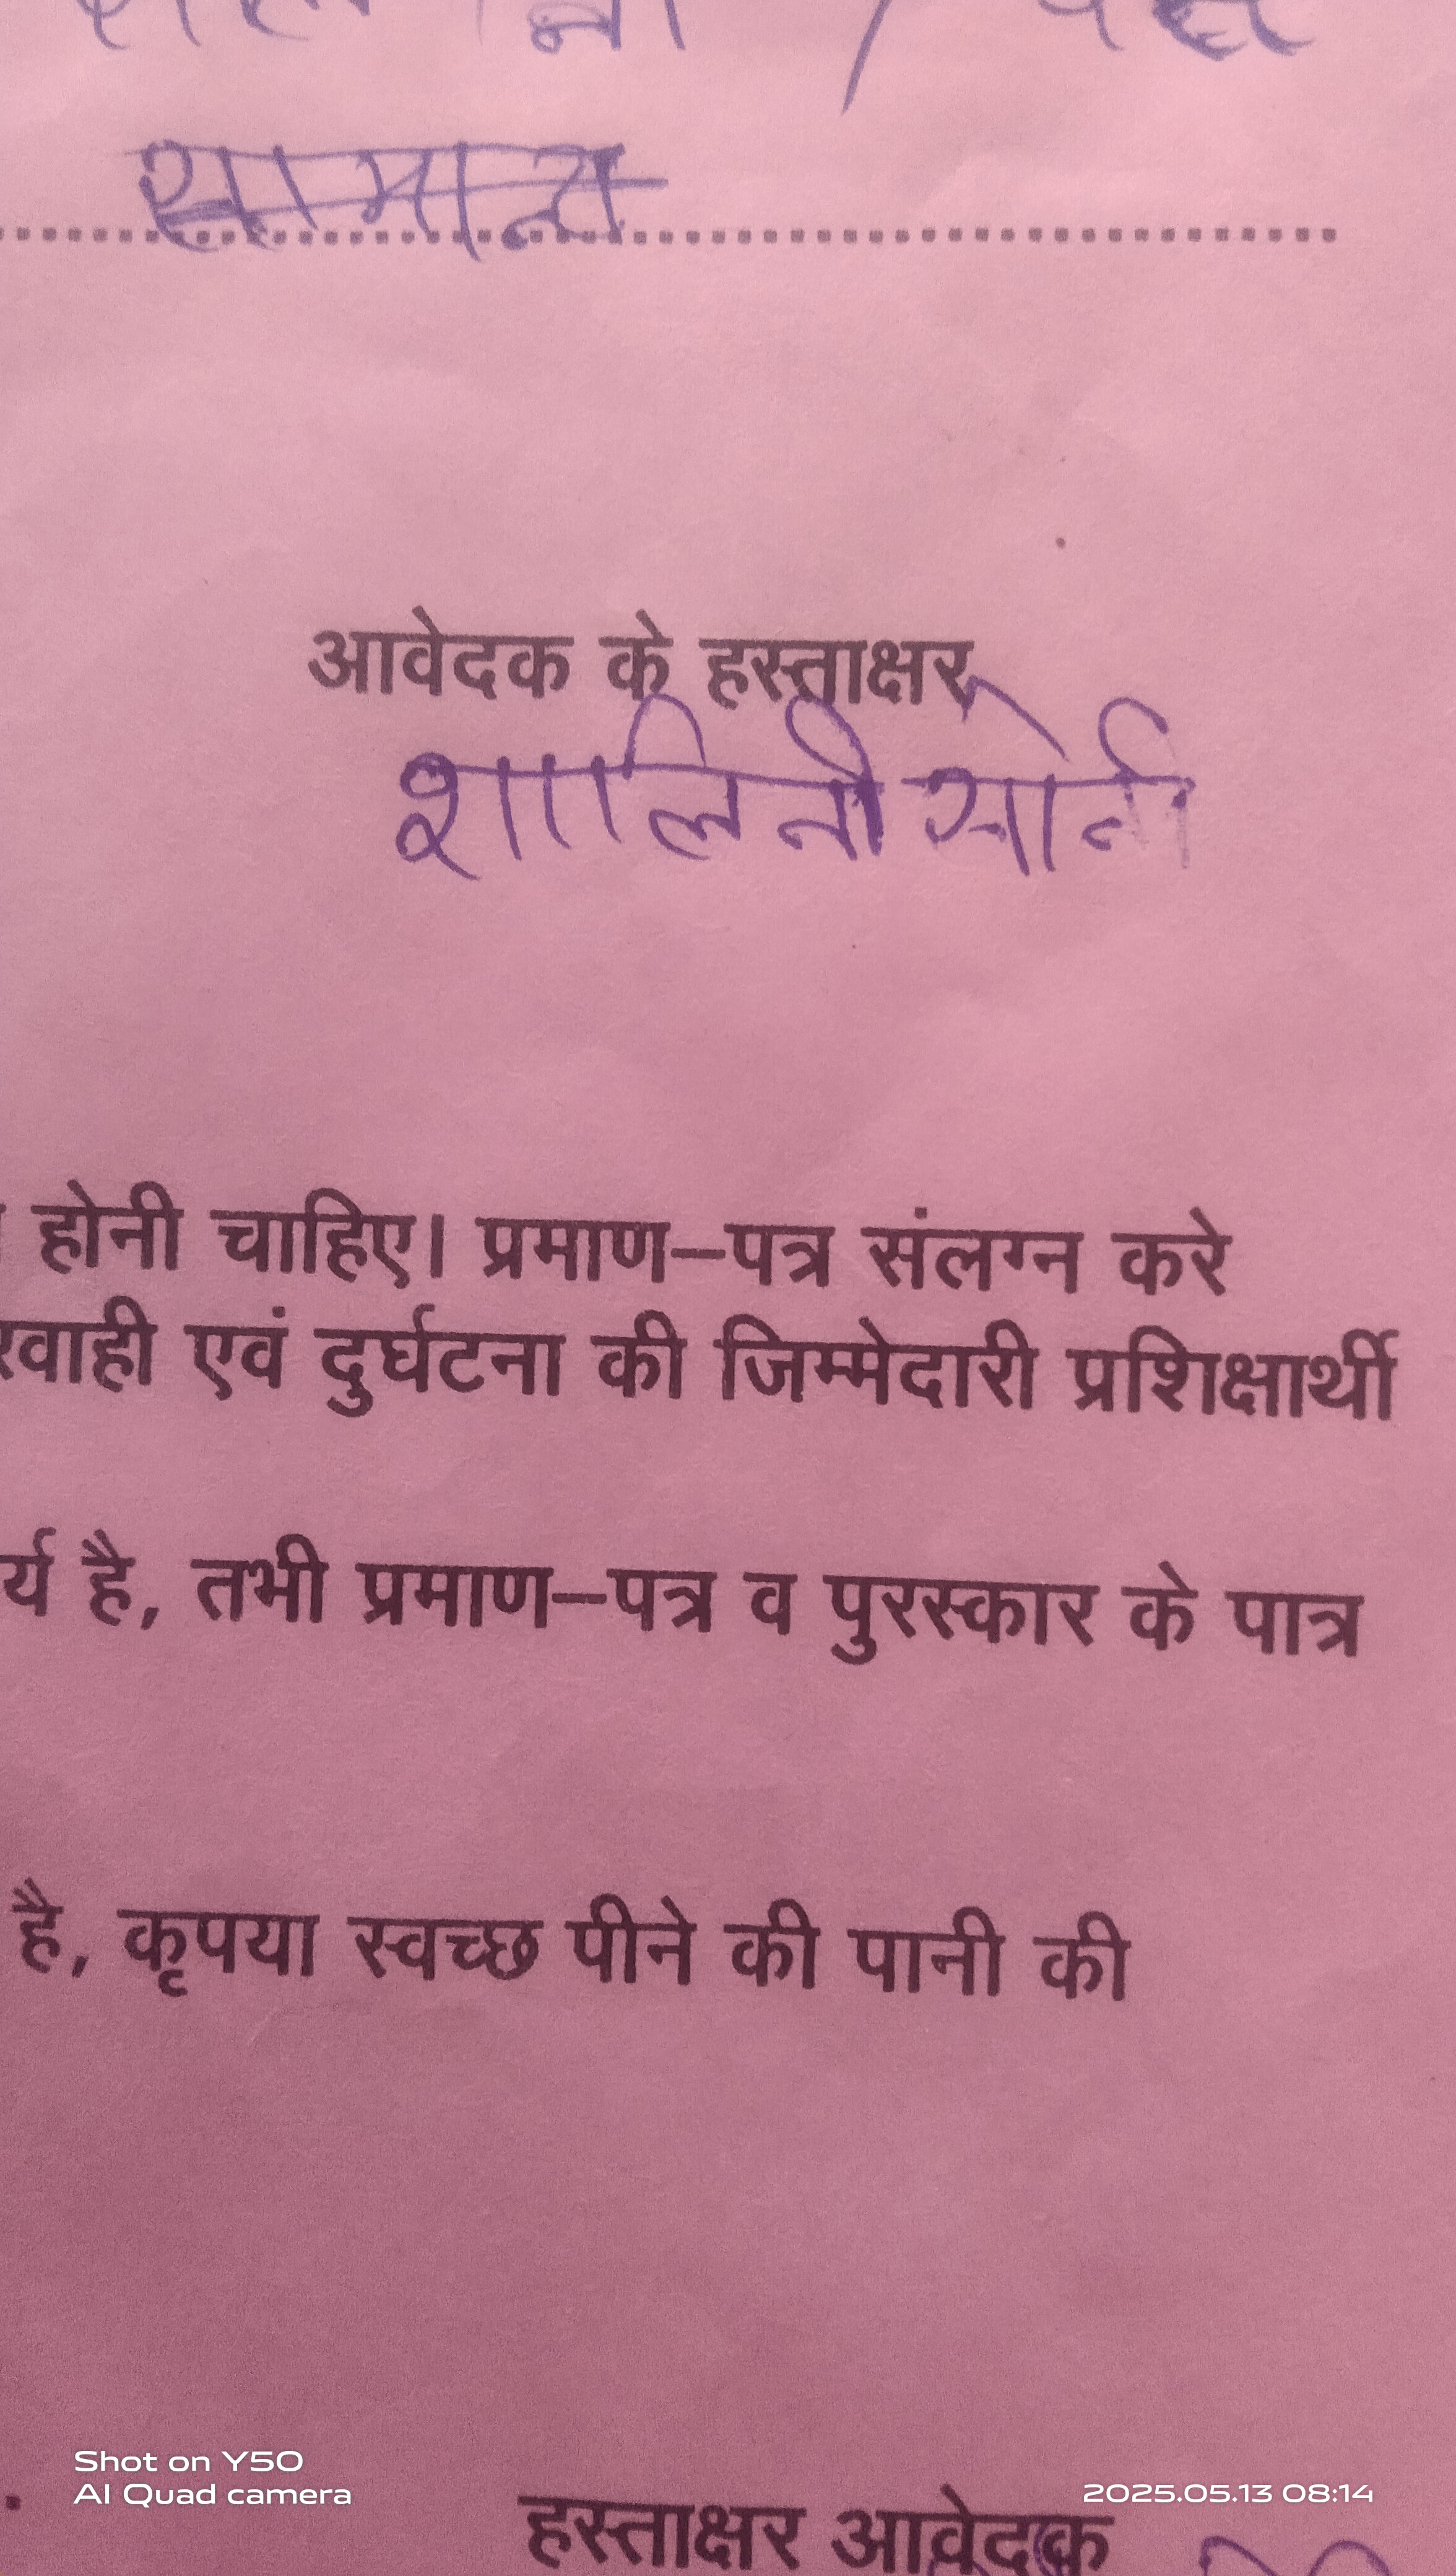 सामान्य
आवेदक के हस्ताक्षर
शालिनी सोनी
होनी चाहिए। प्रमाण–पत्र संलग्न करे
रवाही एवं दुर्घटना की जिम्मेदारी प्रशिक्षार्थी
र्य है, तभी प्रमाण–पत्र व पुरस्कार के पात्र
है, कृपया स्वच्छ पीने की पानी की
Shot on Y50
AI Quad camera
2025.05.13 08:14
हस्ताक्षर आवेदक